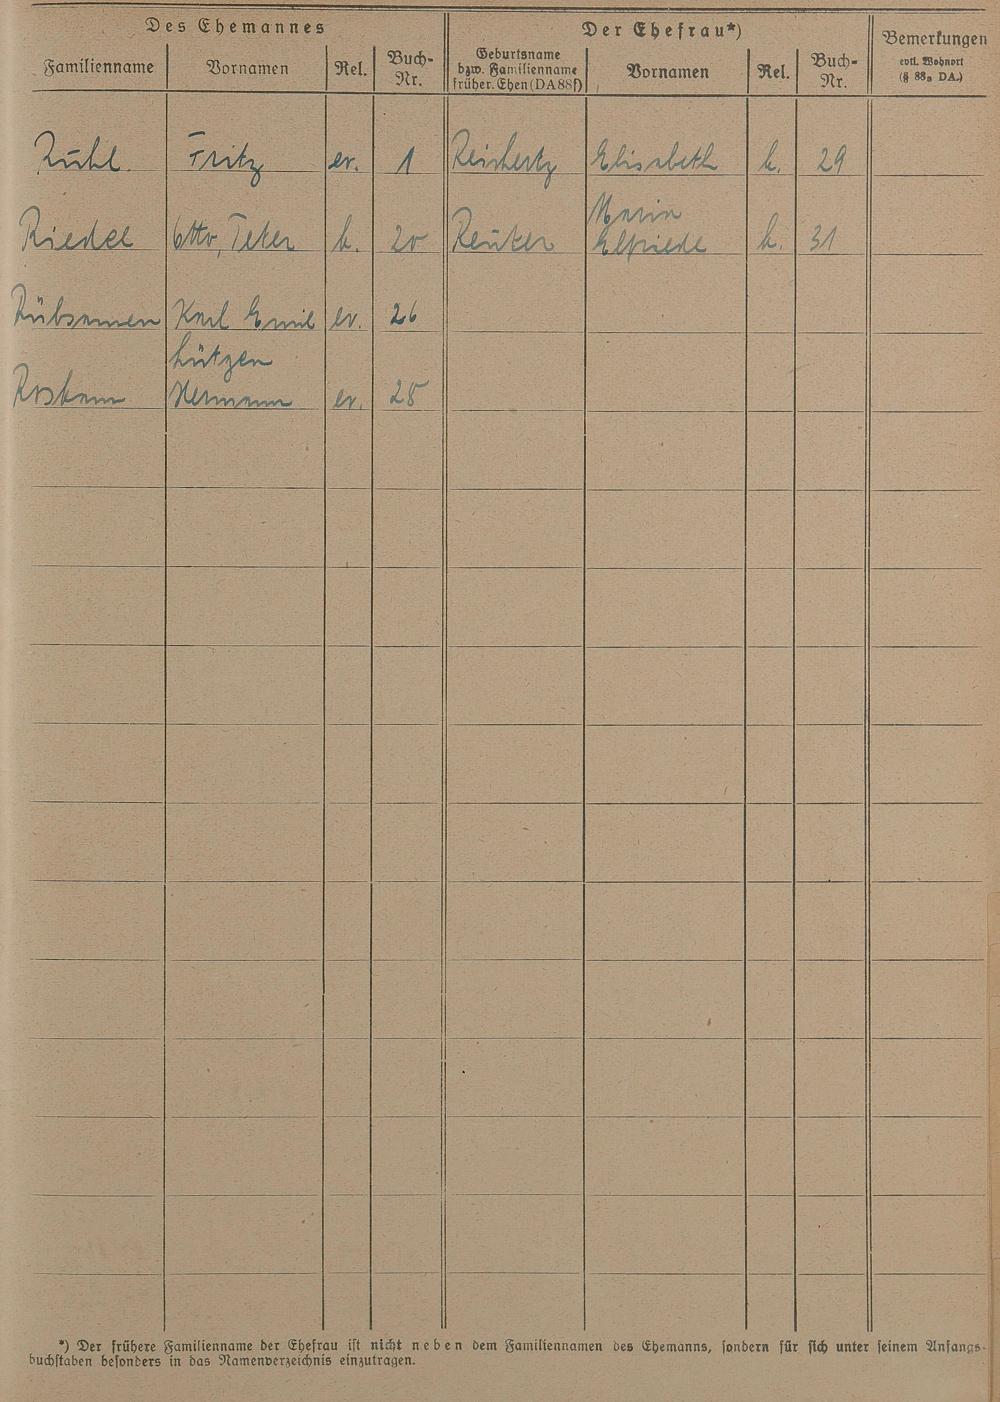 Des Ehemannes
Der Ehefrau*)
Bemerkungen
evtl. Wohnort
(§ 88a DA.)
Familienname
Vornamen
Rel.
Buch-
Nr.
Geburtsname
bzw. Familienname
früher. Ehen (DA88f)
Vornamen
Rel.
Buch-
Nr.
Rühl. Fritz ev. 1 Reichertz Elisabeth k. 29
Maria
Riedel Otto, Peter k. 20 Reuter Elfriede k. 31
Rübsamen Karl Emil ev. 26
Lützen
Roskam Hermann ev. 28
*) Der frühere Familienname der Ehefrau ist nicht neben dem Familiennamen des Ehemanns, sondern für sich unter seinem Anfangs-
buchstaben besonders in das Namenverzeichnis einzutragen.